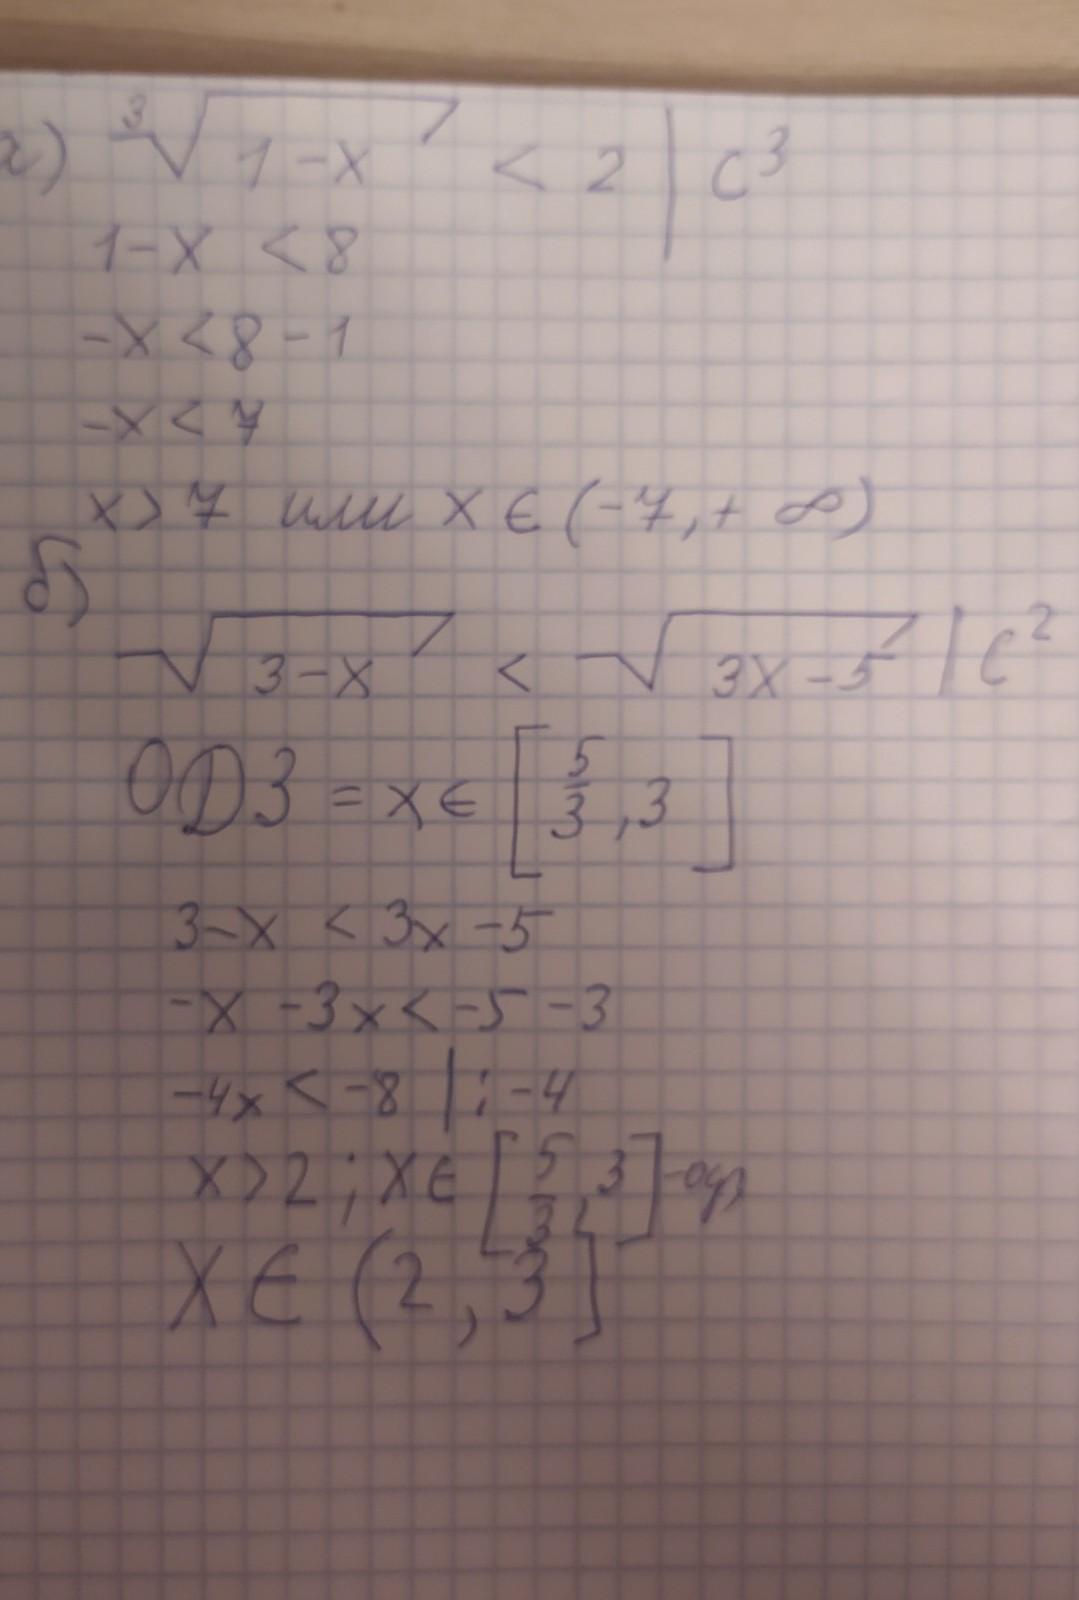 а) ∛(1-x) < 2 | C³
1-x < 8
-x < 8 - 1
-x < 7
x > 7 или x ∈ (-7, + ∞)
б)
√(3-x) < √(3x-5) | C²
ОДЗ = x ∈ [5/3, 3]
3-x < 3x-5
-x -3x < -5 -3
-4x < -8 | : -4
x > 2 ; x ∈ [5/3, 3] - одз
x ∈ (2, 3]